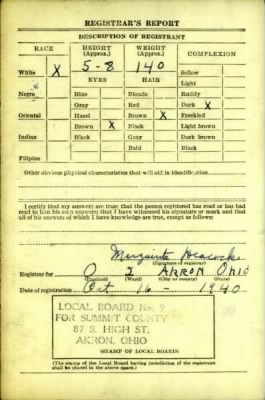 REGISTRAR'S REPORT
DESCRIPTION OF REGISTRANT
RACE HEIGHT (Approx.) WEIGHT (Approx.) COMPLEXION
White X 5-8 140 Sallow
EYES HAIR Light
Negro Blue Blonde Ruddy
Gray Red Dark X
Oriental Hazel Brown X Freckled
Brown X Black Light brown
Indian Black Gray Dark brown
Bald Black
Filipino
Other obvious physical characteristics that will aid in identification
I certify that my answers are true; that the person registered has read or has had read to him his own answers; that I have witnessed his signature or mark and that all of his answers of which I have knowledge are true, except as follows:
Marguerite
(Signature of registrar)
Registrar for O 2 AKRON OHIO
(Precinct) (Ward) (City or county) (State)
Date of registration Oct 16 - 1940
LOCAL BOARD No. 9
FOR SUMMIT COUNTY
87 S. HIGH ST.
AKRON, OHIO
(STAMP OF LOCAL BOARD)
(The stamp of the Local Board having jurisdiction of the registrant
shall be placed in the above space.)